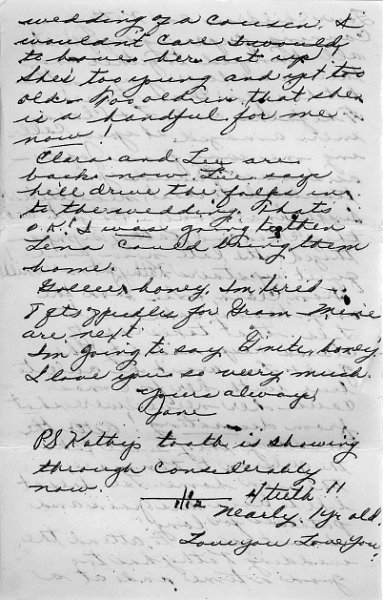 wedding of a cousin. I
wouldn't care I would
to have her act up
She's too young and yet too
old - too old in that she
is a handful for me
now!
Clara and Lee are
back now. Lee says
he'll drive the folks in
to the wedding. Thats
O.K! I was going to then
Lena could bring them
home.
honey. I'm tired -
7 qts pickles for Gram - Mine
are next
I'm going to say G'nite, honey
I love you so very much.
Yours always,
Jane
PS Kathys tooth is showing
through considerably
now.
4 teeth!!
11/12
Nearly 1 yr old.
Love you Love you!